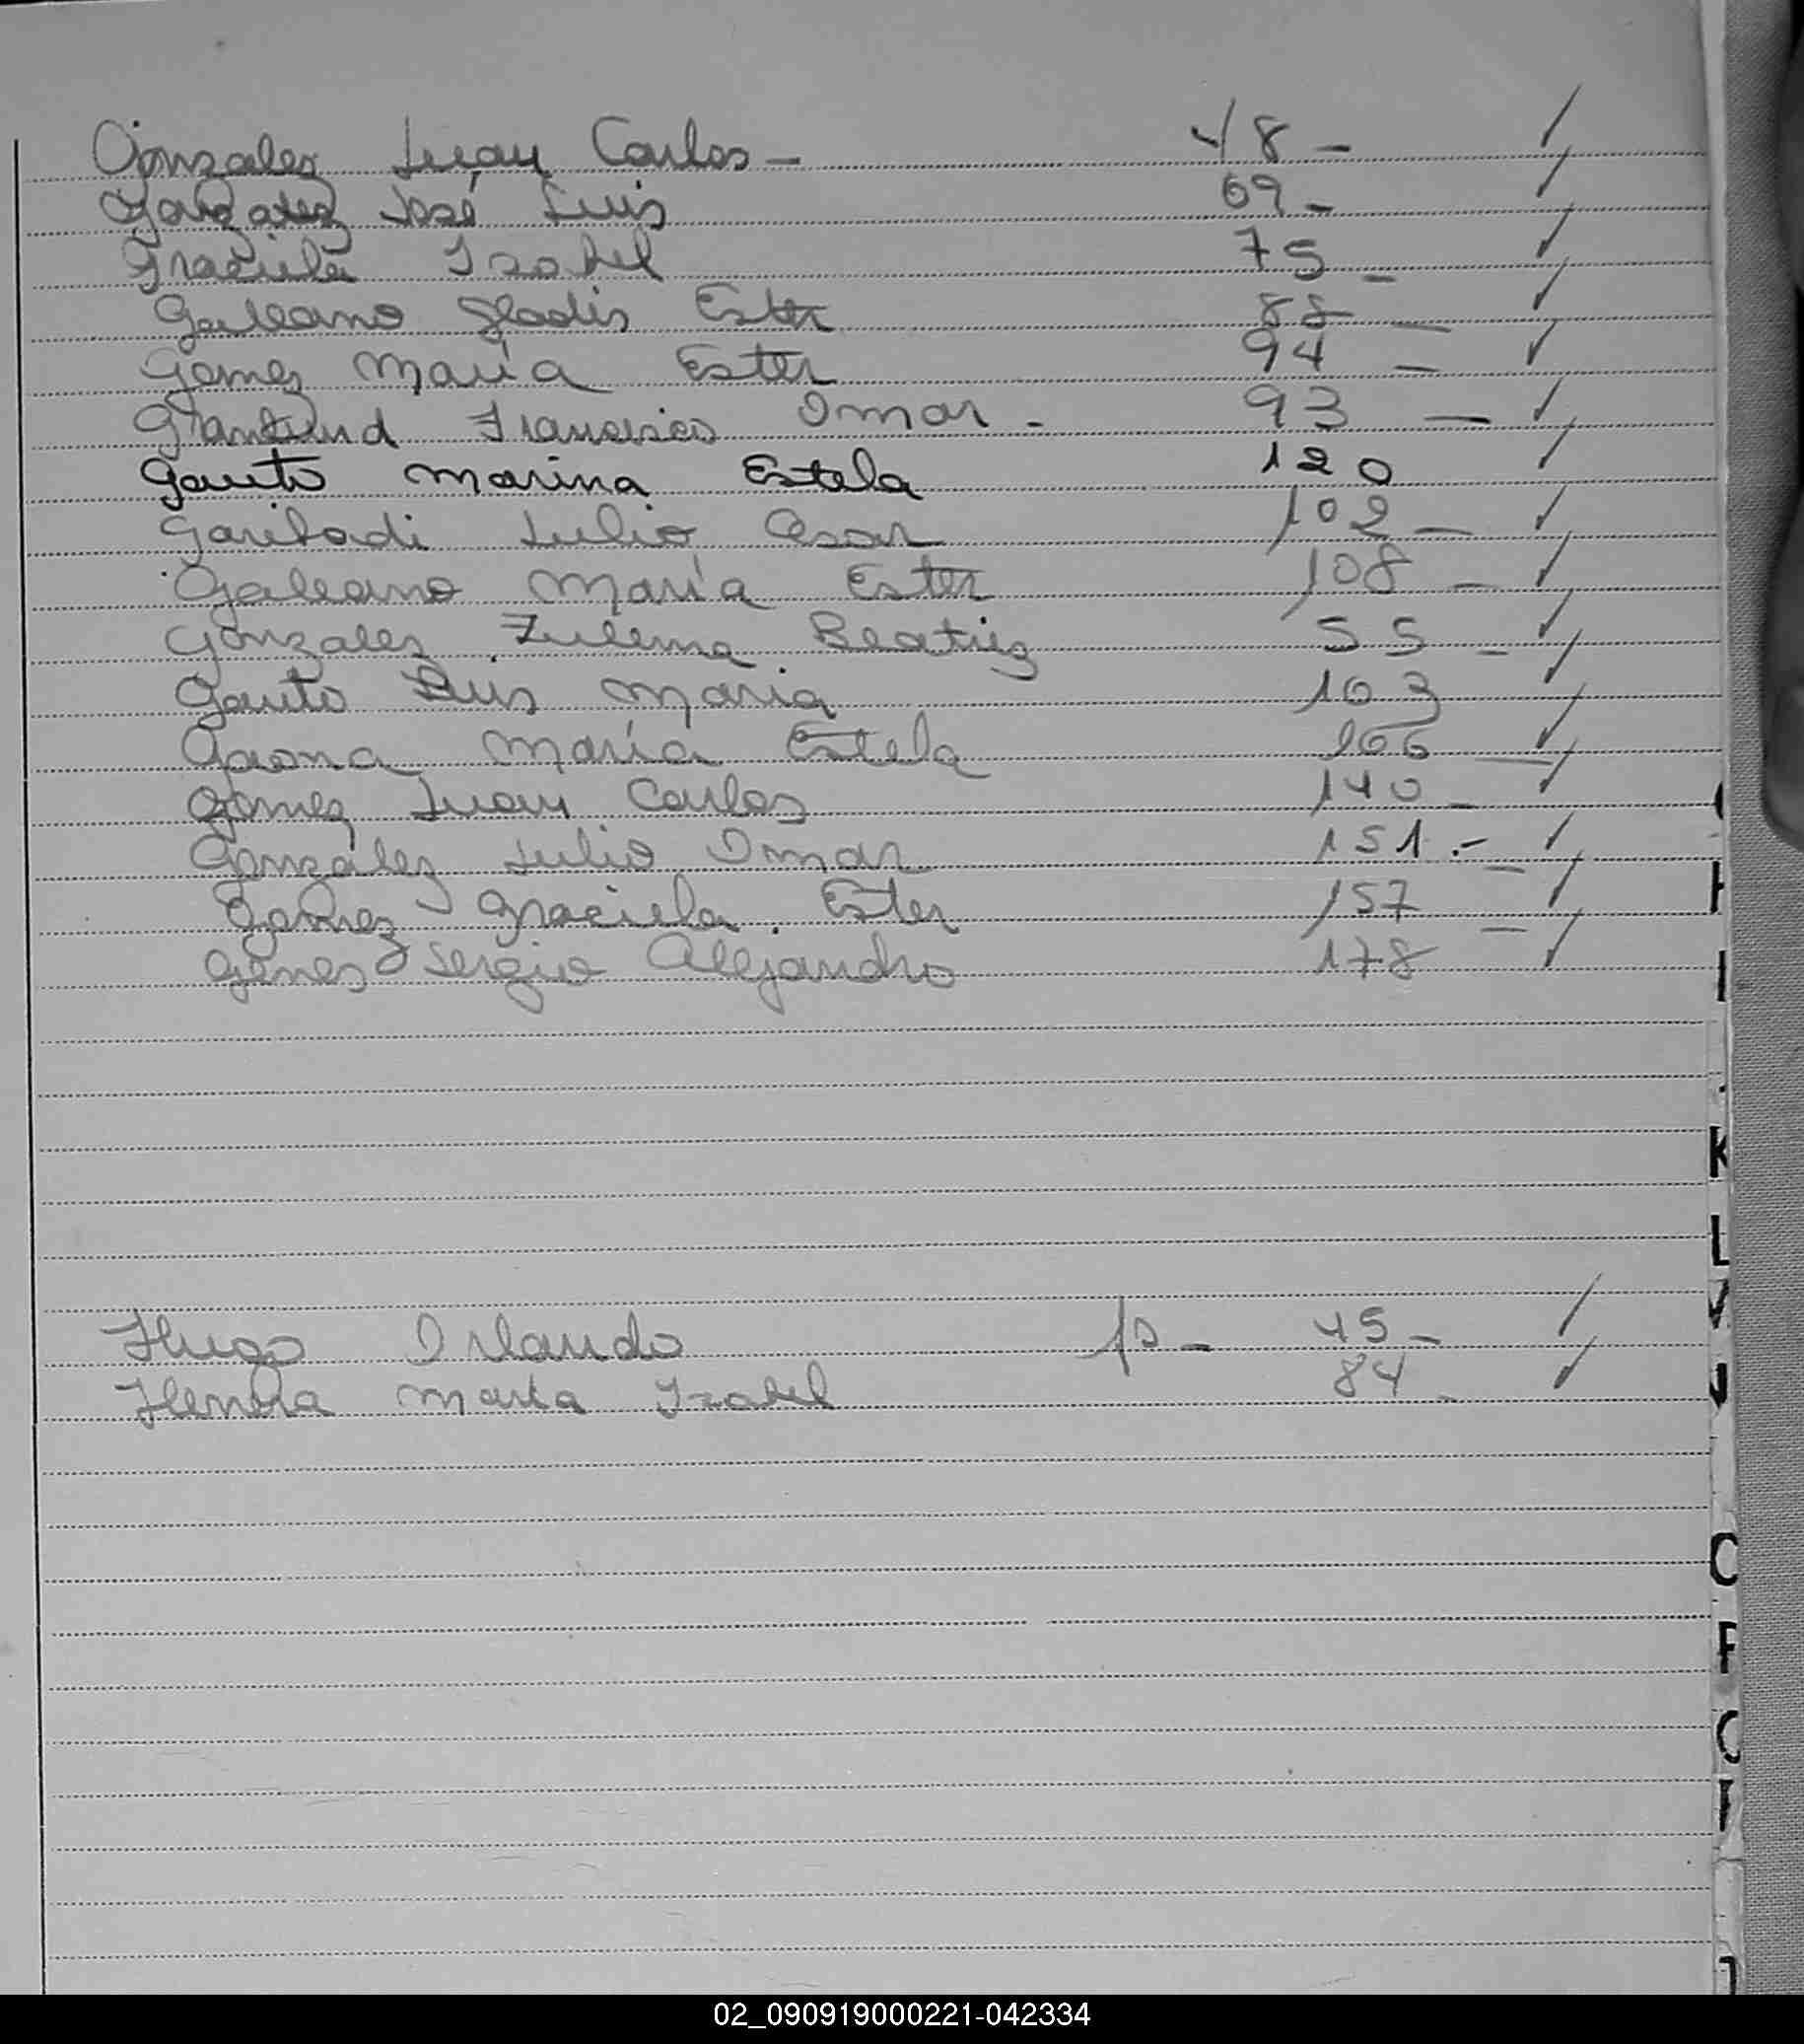 Gonzalez Juan Carlos - 48 - ✓
Gonzalez José Luis 69 - ✓
Graciela Isabel 75 - ✓
Galeano Gladis Ester 88 - ✓
Gomez María Ester 94 - ✓
Francisco Omar - 93 - ✓
Gauto Marina Estela 120 ✓
Garibadi Julio Cesar 102 - ✓
Galeano María Ester 108 - ✓
Gonzalez Zulema Beatriz 55 - ✓
Gauto Luis Maria 103 ✓
Gaona María Estela 166 - ✓
Gomez Juan Carlos 140 - ✓
Gonzalez Julio Omar 151.- - ✓
Gomez Graciela Ester 157 - ✓
Genes Sergio Alejandro 178 ✓
Hugo Orlando - 45 - ✓
Maria Izabel 84 - ✓
K
L
C
02_090919000221-042334